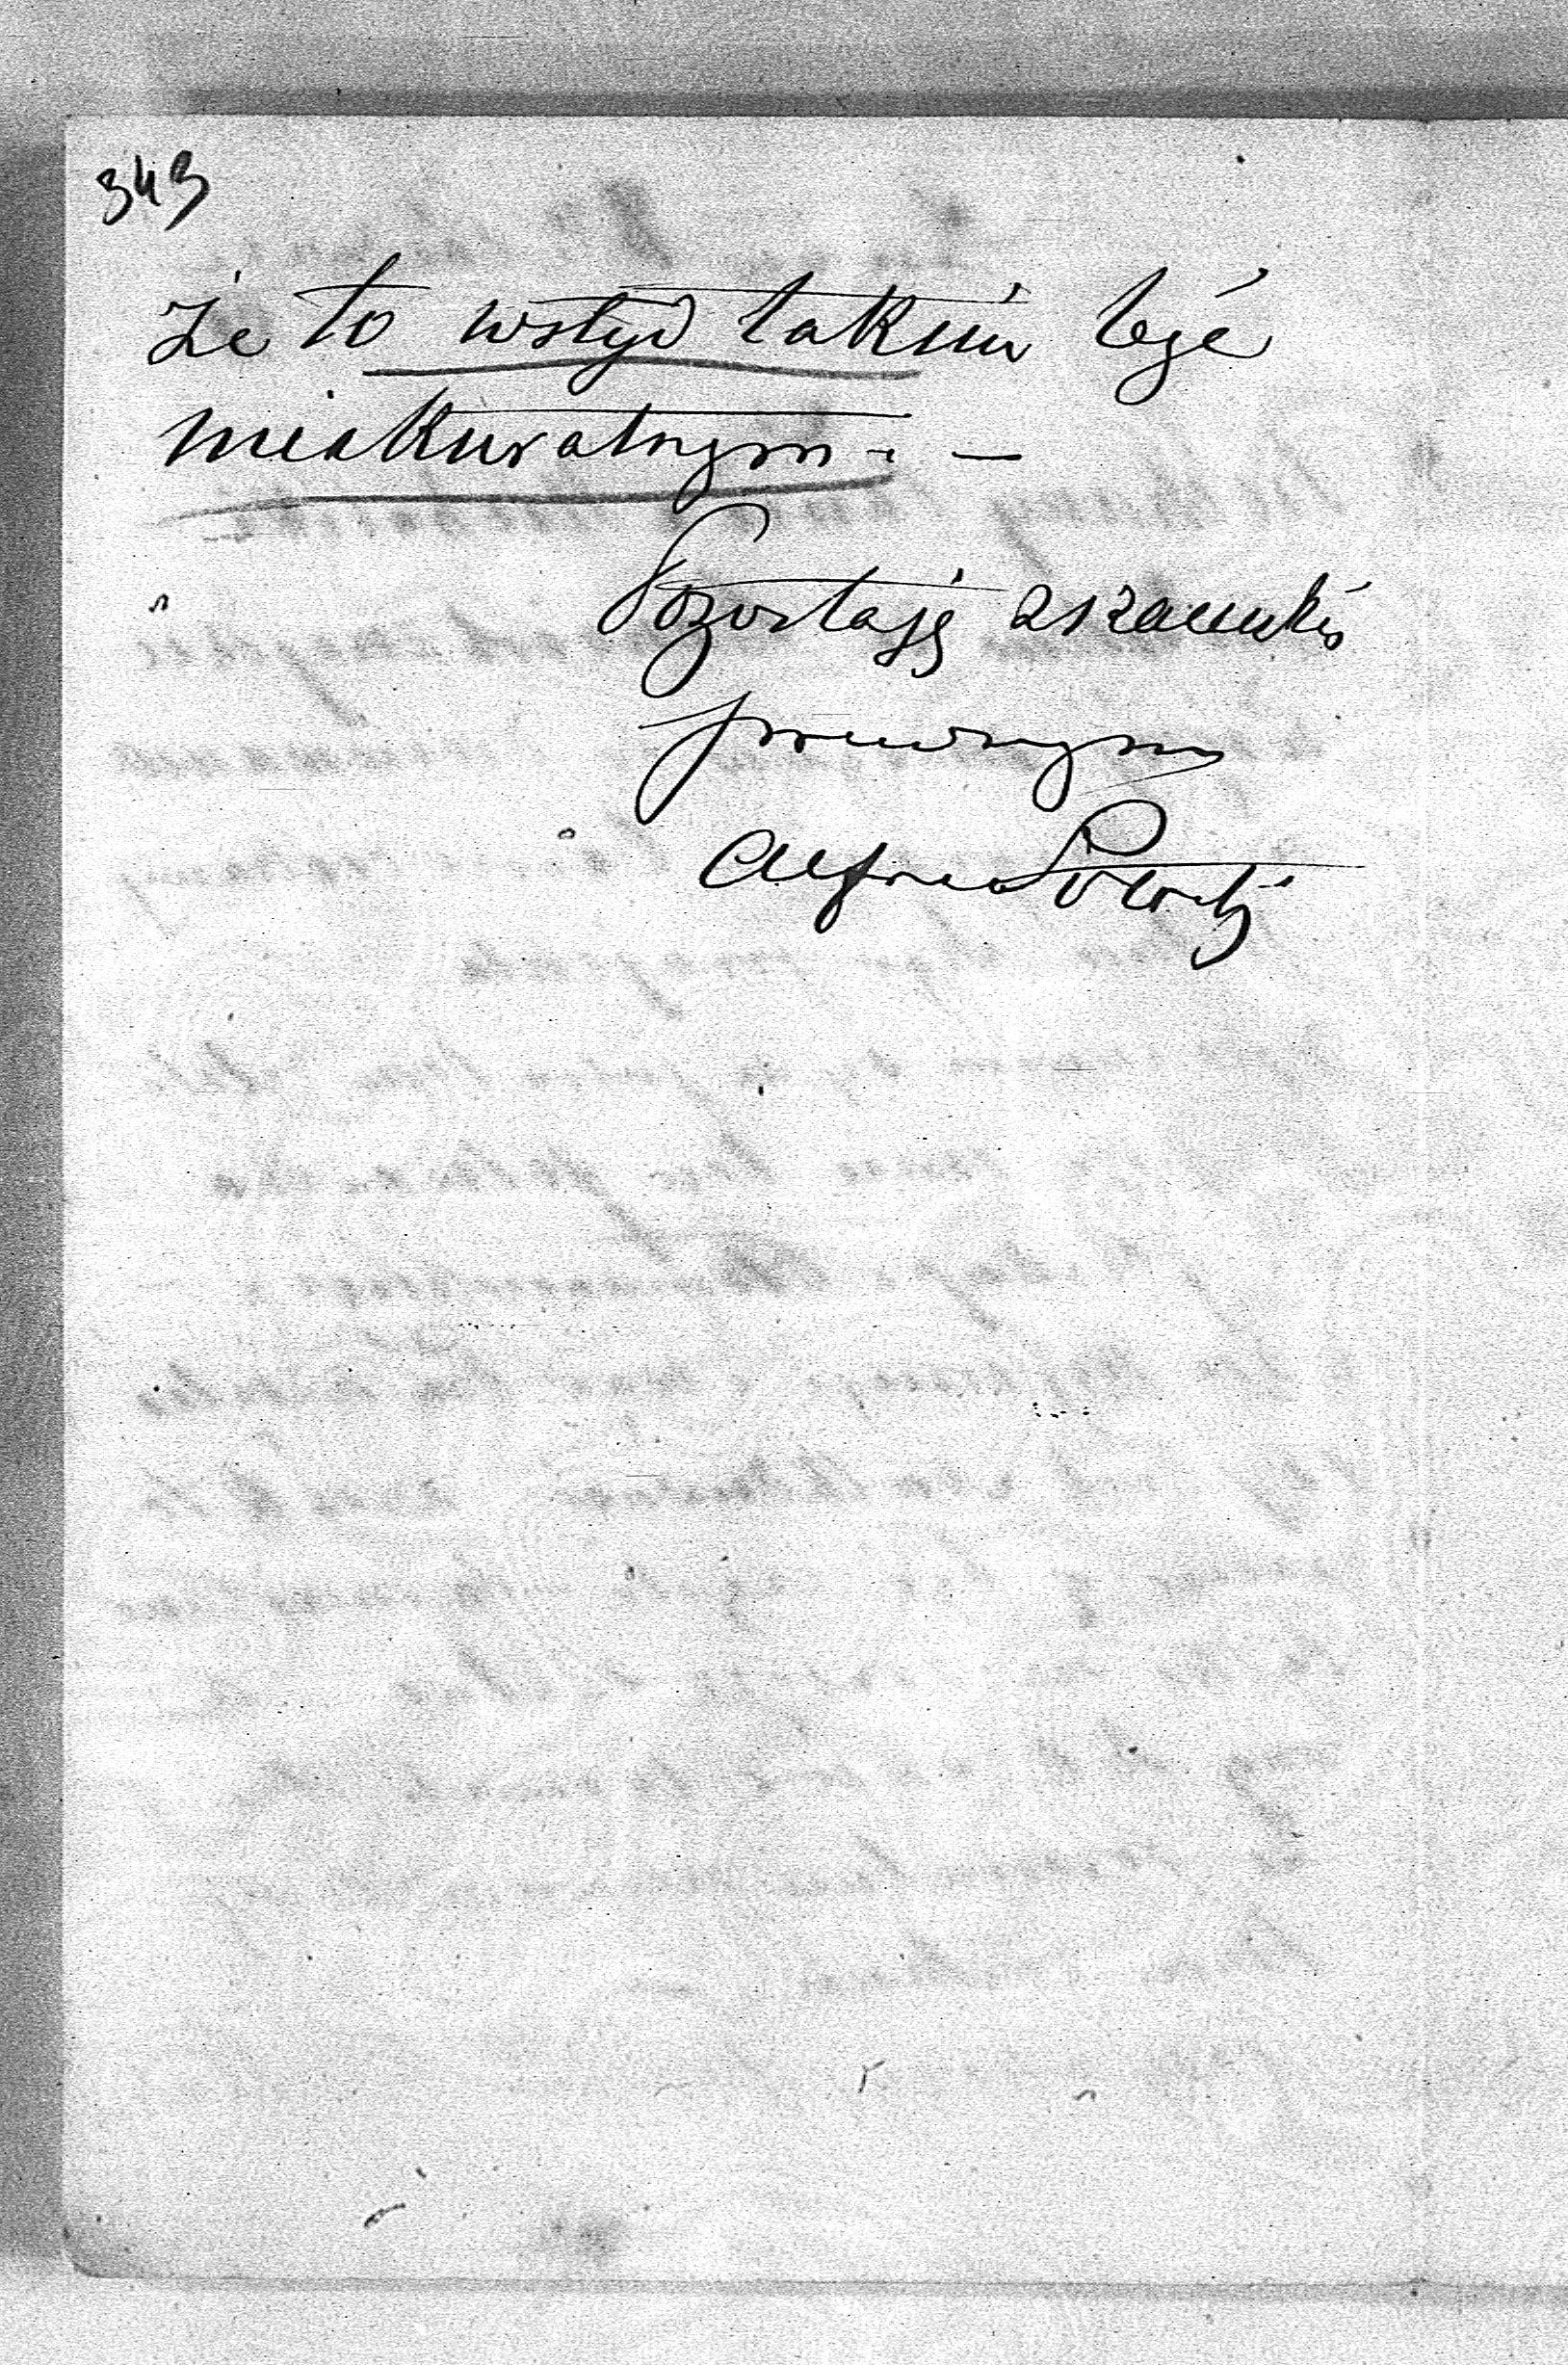 343
że to wstyd takim być
niakuratnym. —
Pozostaję z szacunkiem
prawdziwym
Alfred Potocki